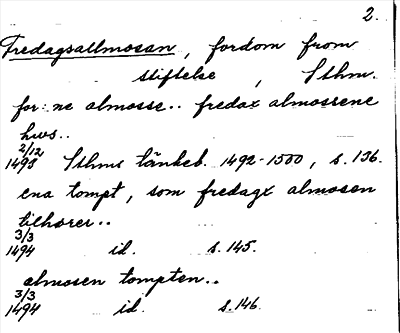 2.
Fredagsallmosan, fordom from
stiftelse, Sthm.
for: ne almosse.. fredax almossene
hws..
2/12
1493 Sthms tänkeb. 1492-1500, s. 136.
ena tompt, som fredagx almosen
tilhörer..
3/3
1494 id. s. 145.
almosen tompten..
3/3
1494 id. s. 146.